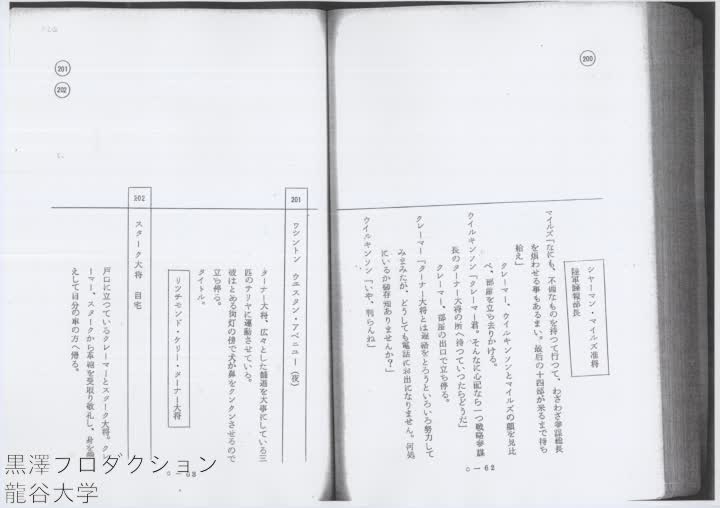 200
シャーマン・マイルズ准将
陸軍諜報部長
マイルズ「なにも、不備なものを持つて行つて、わざわざ参謀総長
を煩わせる事もあるまい。最后の十四部が来るまで待ち
給え」
クレーマー、ウイルキンソンとマイルズの顔を見比
べ、部屋を立ち去りかける。
ウイルキンソン「クレーマー君。そんなに心配なら一つ戦略参謀
長のターナー大将の所へ持つていつたらどうだ」
クレーマー、部屋の出口で立ち停る。
クレーマー「ターナー大将とは連絡をとろうといろいろ努力して
みましたが、どうしても電話にお出になりません。何処
にいるか御存知ありませんか?」
ウイルキンソン「いや、判らんね」
C－62
201
202
201 ワシントン ウエスタン・アベニュー（夜）
ターナー大将、広々とした舗道を大事にしている三
匹のテリヤに運動させている。
彼はとある街灯の傍で犬が鼻をクンクンさせるので
立ち停る。
タイトル。
リッチモンド・ケリー・ターナー大将
202 スターク大将 自宅
戸口に立つているクレーマーとスターク大将。クレ
ーマー、スタークから革袍を受取り敬礼し、身を
えして自分の車の方へ帰る。
C－63
黒澤プロダクション
龍谷大学